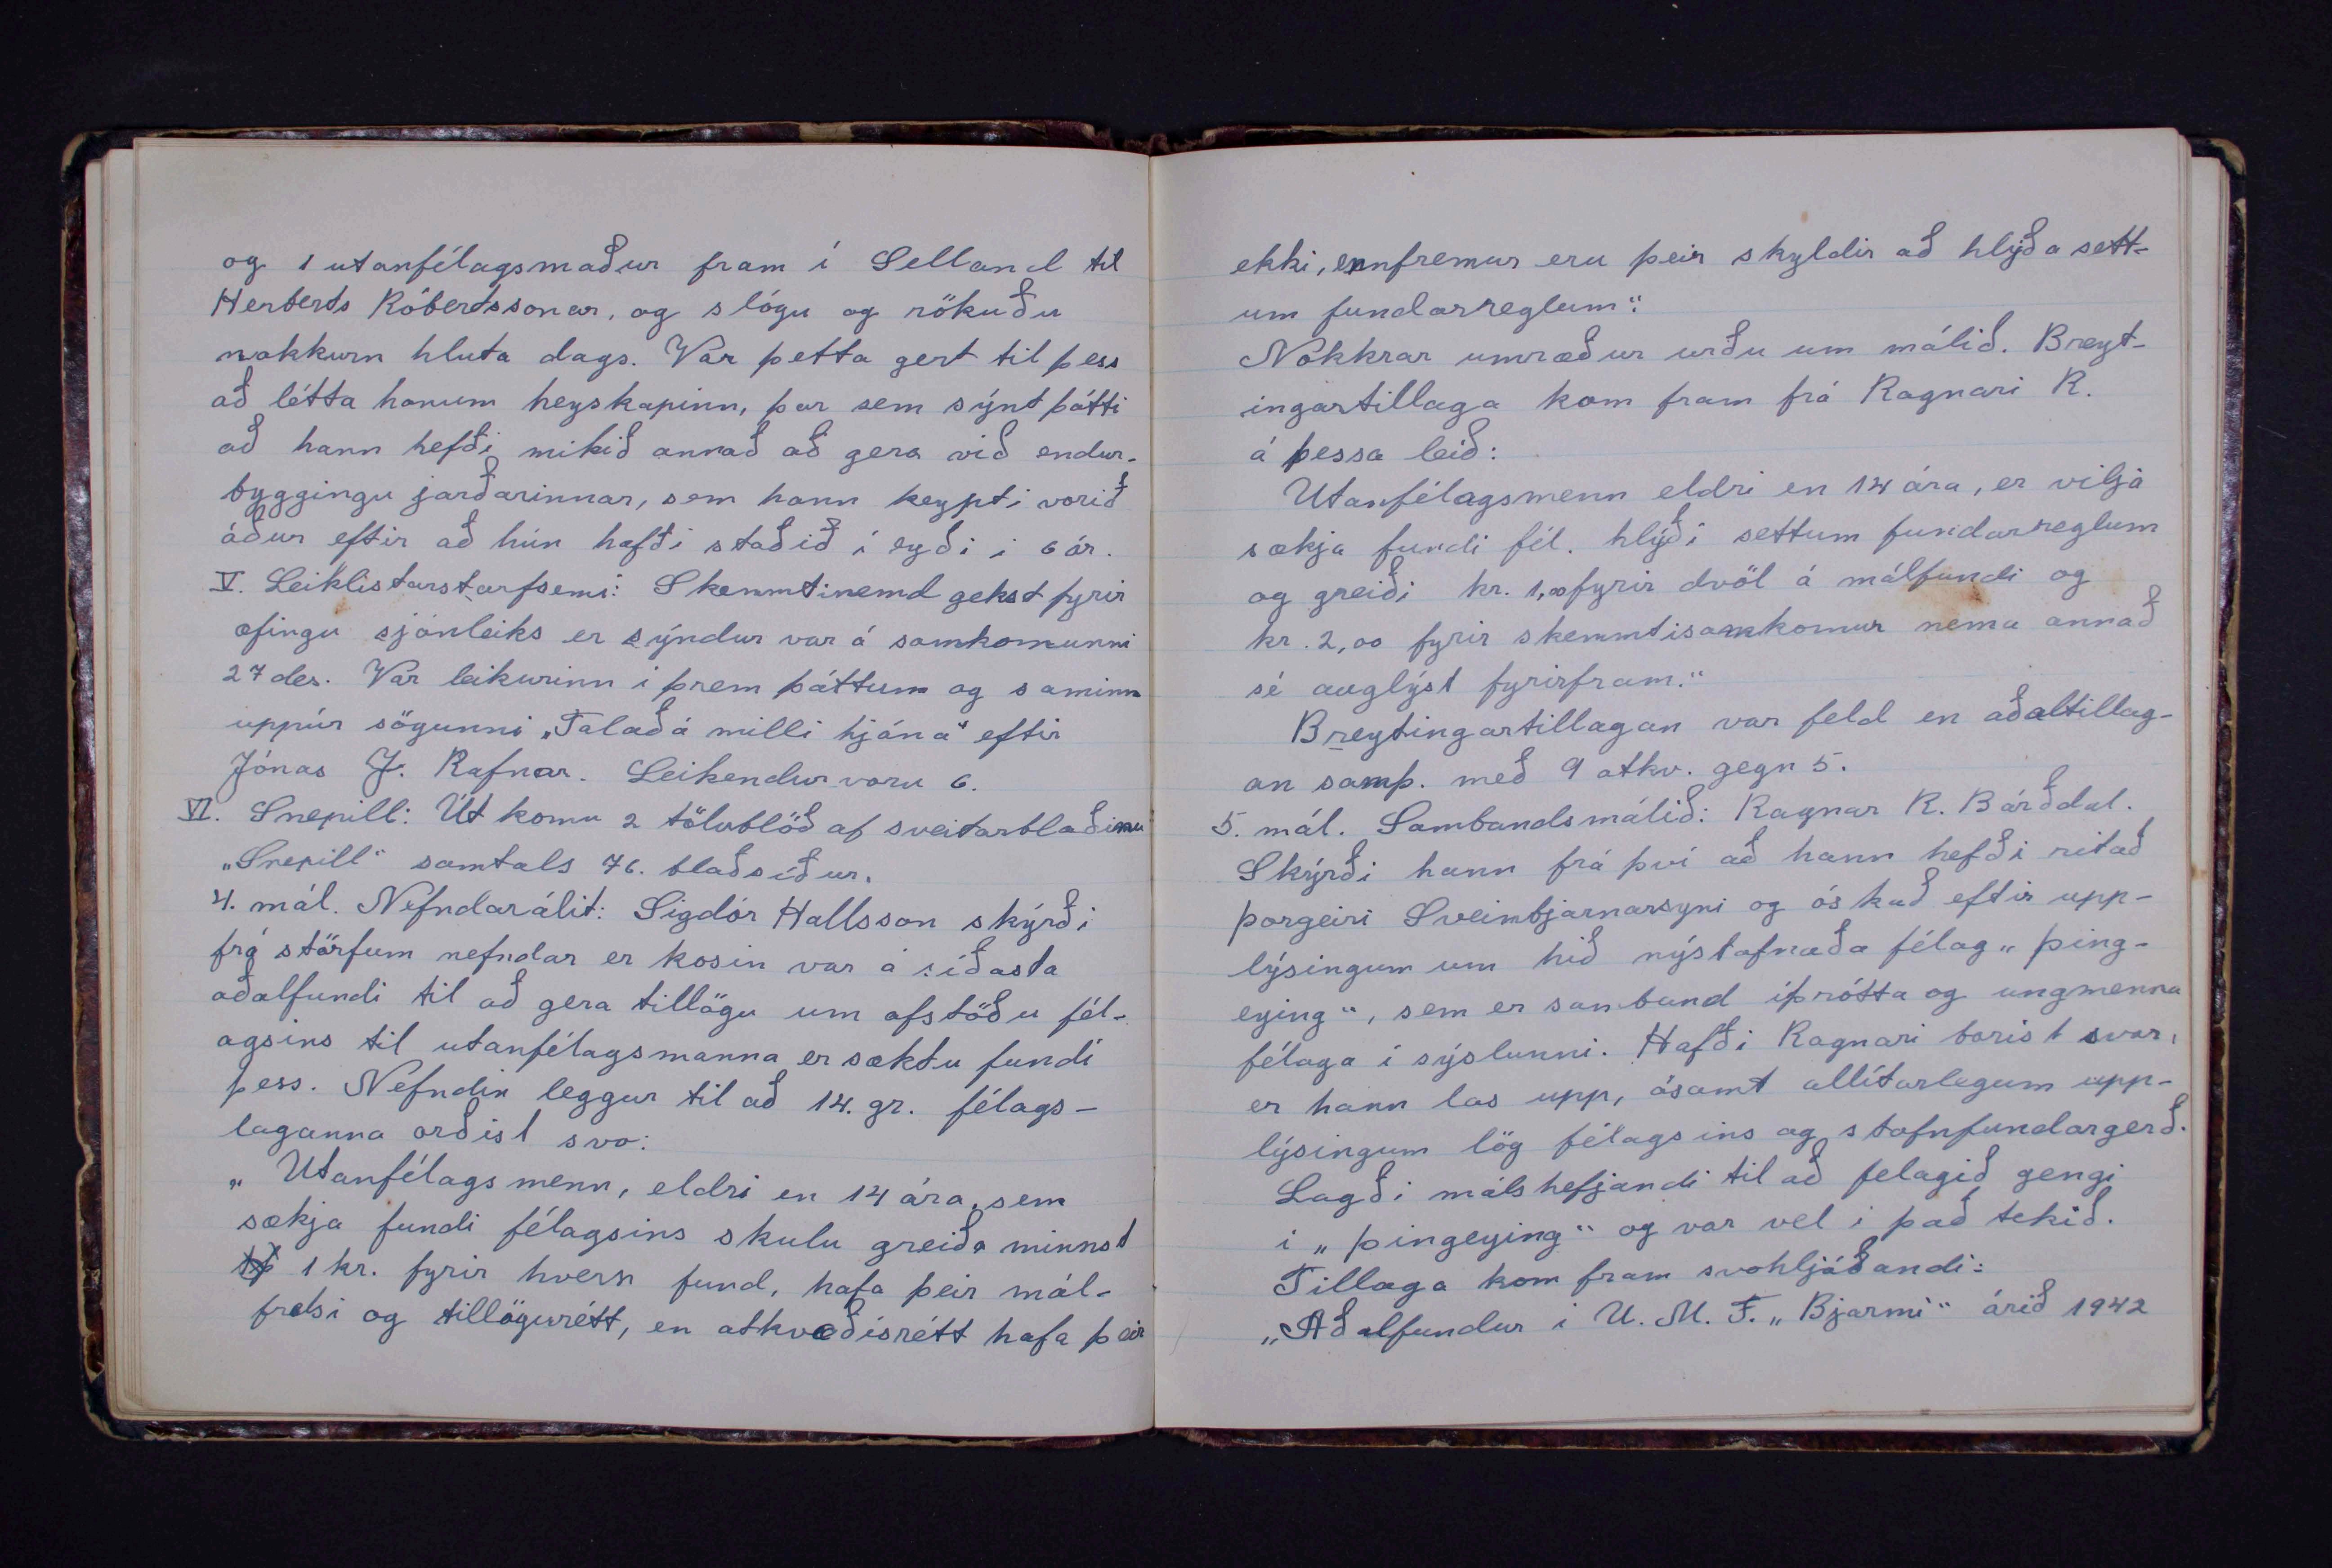 og 1 utanfélagsmaður fram í Selland til
Herberts Róbertssonar, og slógu og rökuðu
nokkurn hluta dags. Var þetta gert til þess
að létta honum heyskapinn, þar sem sýnt þótti
að hann hefði mikið annað að gera við endur-
byggingu jarðarinnar, sem hann keypti vorið
áður eftir að hún hafði staðið í eyði í 6 ár.
V. Leiklistarstarfsemi: Skemmtinemd gekst fyrir
æfingu sjónleiks er sýndur var á samkomunni
27 des. Var leikurinn í þrem þáttum og saminn
uppúr sögunni „Talað á milli hjóna" eftir
Jónas J. Rafnar. Leikendur voru 6.
VI. Snepill: Út komu 2 tölublöð af sveitarblaðinu
„Snepill" samtals 76. blaðsíður.
4. mál. Nefndarálit: Sigdór Hallsson skýrði
frá störfum nefndar er kosin var á síðasta
aðalfundi til að gera tillögu um afstöðu fél-
agsins til utanfélagsmanna er sæktu fundi
þess. Nefndin leggur til að 14. gr. félags-
laganna orðist svo:
„Utanfélagsmenn, eldri en 14 ára, sem
sækja fundi félagsins skulu greiða minnst
1 kr. fyrir hvern fund, hafa þeir mál-
frelsi og tillögurétt, en atkvæðisrétt hafa þeir
ekki, ennfremur eru þeir skyldir að hlýða sett-
um fundarreglum".
Nokkrar umræður urðu um málið. Breyt-
ingartillaga kom fram frá Ragnari R.
á þessa leið:
Utanfélagsmenn eldri en 14 ára, er vilja
sækja fundi fél. hlýði settum fundarreglum
og greiði kr. 1,00 fyrir dvöl á málfundi og
kr. 2,00 fyrir skemmtisamkomur nema annað
sé auglýst fyrirfram."
Breytingartillagan var feld en aðaltillag-
an samþ. með 9 atkv. gegn 5.
5. mál. Sambandsmálið: Ragnar R. Bárðdal.
Skýrði hann frá því að hann hefði ritað
Þorgeiri Sveinbjarnarsyni og óskað eftir upp-
lýsingum um hið nýstofnaða félag „Þing-
eying", sem er sanband íþrótta og ungmenna
félaga í sýslunni. Hafði Ragnari borist svar,
er hann las upp, ásamt allítarlegum upp-
lýsingum lög félagsins og stofnfundargerð.
Lagði málshefjandi til að felagið gengi
í „Þingeying" og var vel í það tekið.
Tillaga kom fram svohljóðandi:
„Aðalfundur í U. M. F. „Bjarmi" árið 1942